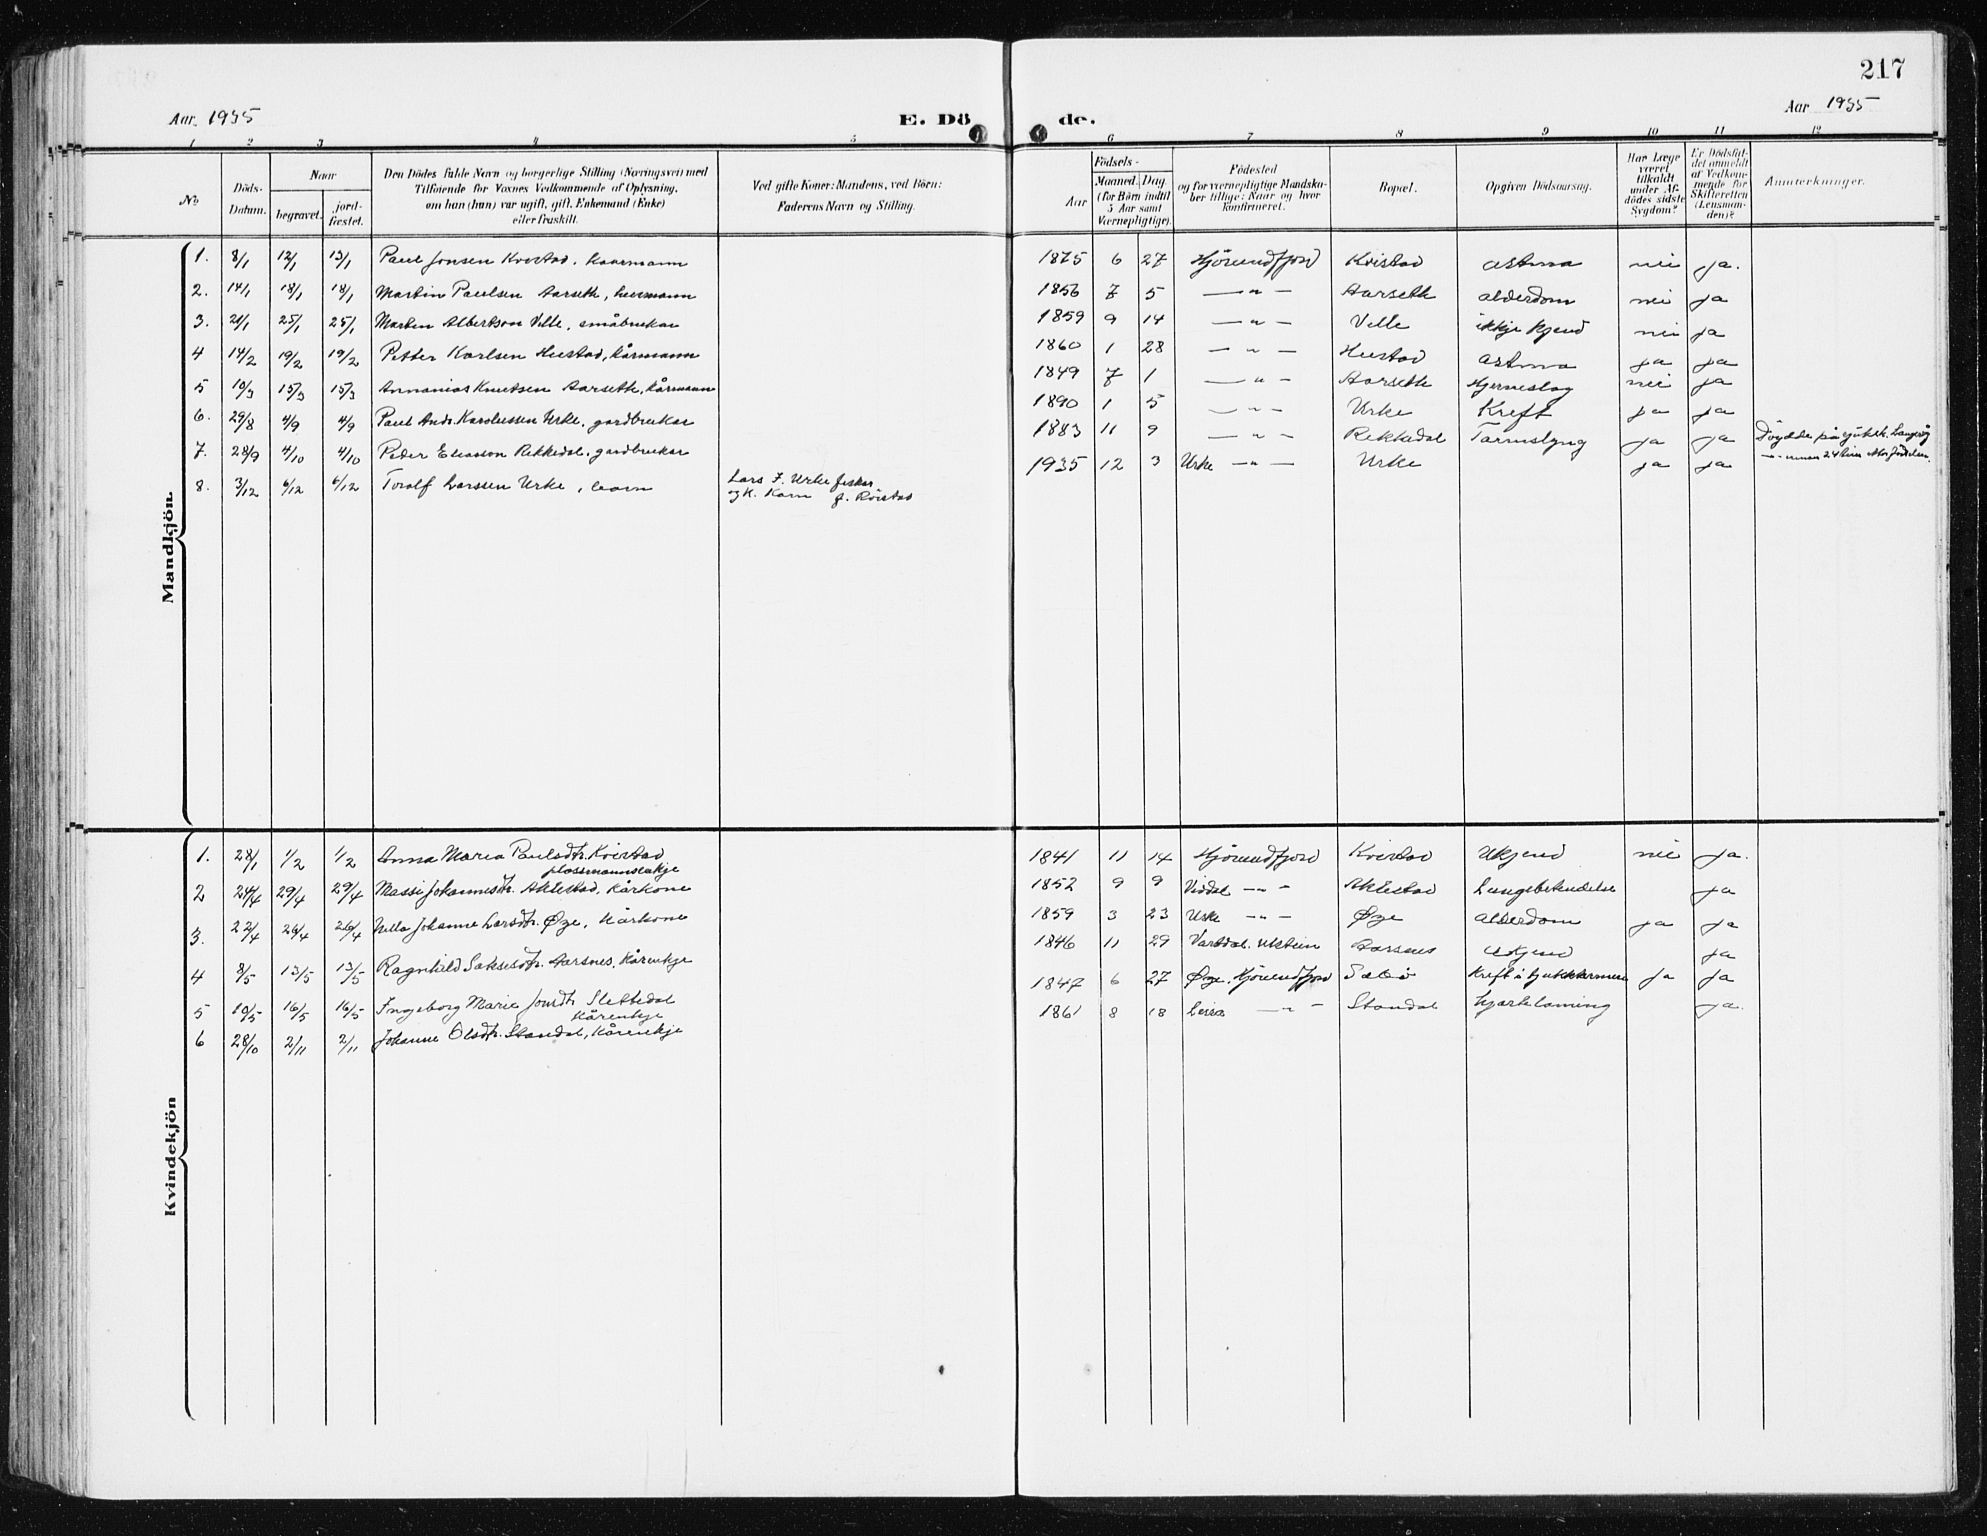 217
Aar 1935 E. Dö de. Aar 1935
1 2 3 4 5 6 7 8 9 10 11 12
No. Döds-Datum. Naar begravet. jord-fæstet. Den Dödes fulde Navn og borgerlige Stilling (Næringsvei) med Tilföiende for Voxnes Vedkommende af Oplysning, om han (hun) var ugift, gift, Enkemand (Enke) eller fraskilt. Ved gifte Koner: Mandens, ved Börn: Faderens Navn og Stilling. Födsels- Aar Maaned. Dag. (for Börn indtil 5 Aar samt Værnepligtige). Födested og for værnepligtige Mandska-ber tillige: Naar og hvor konfirmeret. Bopæl. Opgiven Dödsaarsag. Har Læge været tilkaldt under Af-dödes sidste Sygdom? Er Dödsfal-det anmeldt af Vedkom-mende for Skifteretten (Lensman-den)? Anmærkninger.
Mandkjön
1. 8/1 12/1 13/1 Paul Jonsen Kvistad, kaarmann 1875 6 27 Hjörundfjord Kvistad astma nei ja.
2. 14/1 18/1 18/1 Martin Paulsen Aarseth, husmann 1856 7 5 — " — Aarseth alderdom nei ja
3. 21/1 25/1 25/1 Morten Albertson Velle, småbrukar 1859 9 14 — " — Velle ikkje kjend nei ja
4 14/2 19/2 19/2 Petter Karlsen Hustad, kårmann 1860 1 28 — " — Hustad astma ja ja
5 10/3 15/3 15/3 Annanias Knutsen Aarseth, kårmann 1849 7 1 — " — Aarseth Hjerneslag nei ja
6. 29/8 4/9 4/9 Paul Andr. Karolussen Urke, gardbrukar 1890 1 5 — " — Urke Kreft ja ja
7. 28/9 4/10 4/10 Peder Eliasson Rekkedal, gardbrukar 1883 11 9 — " — Rekkedal Tarmslyng ja ja Döydde på sjukeh. Langevåg
8. 3/12 6/12 6/12 Toralf Larssen Urke, barn Lars J. Urke fiskar 1935 12 3 Urke — " — Urke ja ja — " — innan 24 timar etter födselen.
og k. Karn f. Röistad
Kvindekjön
1. 28/1 1/2 1/2 Anna Maria Paulsdtr. Kvistad 1841 11 14 Hjörundfjord Kvistad Ukjend nei ja.
plassmannsenkje
2 24/4 29/4 29/4 Massi Johannesdtr. Aklestad, Kårkone 1852 9 9 Viddal — " — Aklestad Lungebetendelse ja
3. 22/4 26/4 26/4 Johanne Larsdtr. Øye, Kårkone 1859 3 23 Urke — " — Øye alderdom ja ja
4 8/5 13/5 13/5 Ragnhild Saksesdtr. Aarsnes, Kårenkje 1846 11 29 Vartdal Aarsnes Ukjend ja
5 10/5 16/5 16/5 Ingeborg Marie Jonsdtr. Slettedal 1847 6 27 Øye, Hjörundfjord Sæbö Kreft i ja ja
Kårenkje
6 28/10 2/11 2/11 Johanne Olsdtr. Standal, Kårenkje 1861 8 18 Leira — " — Standal hjartelaming ja.